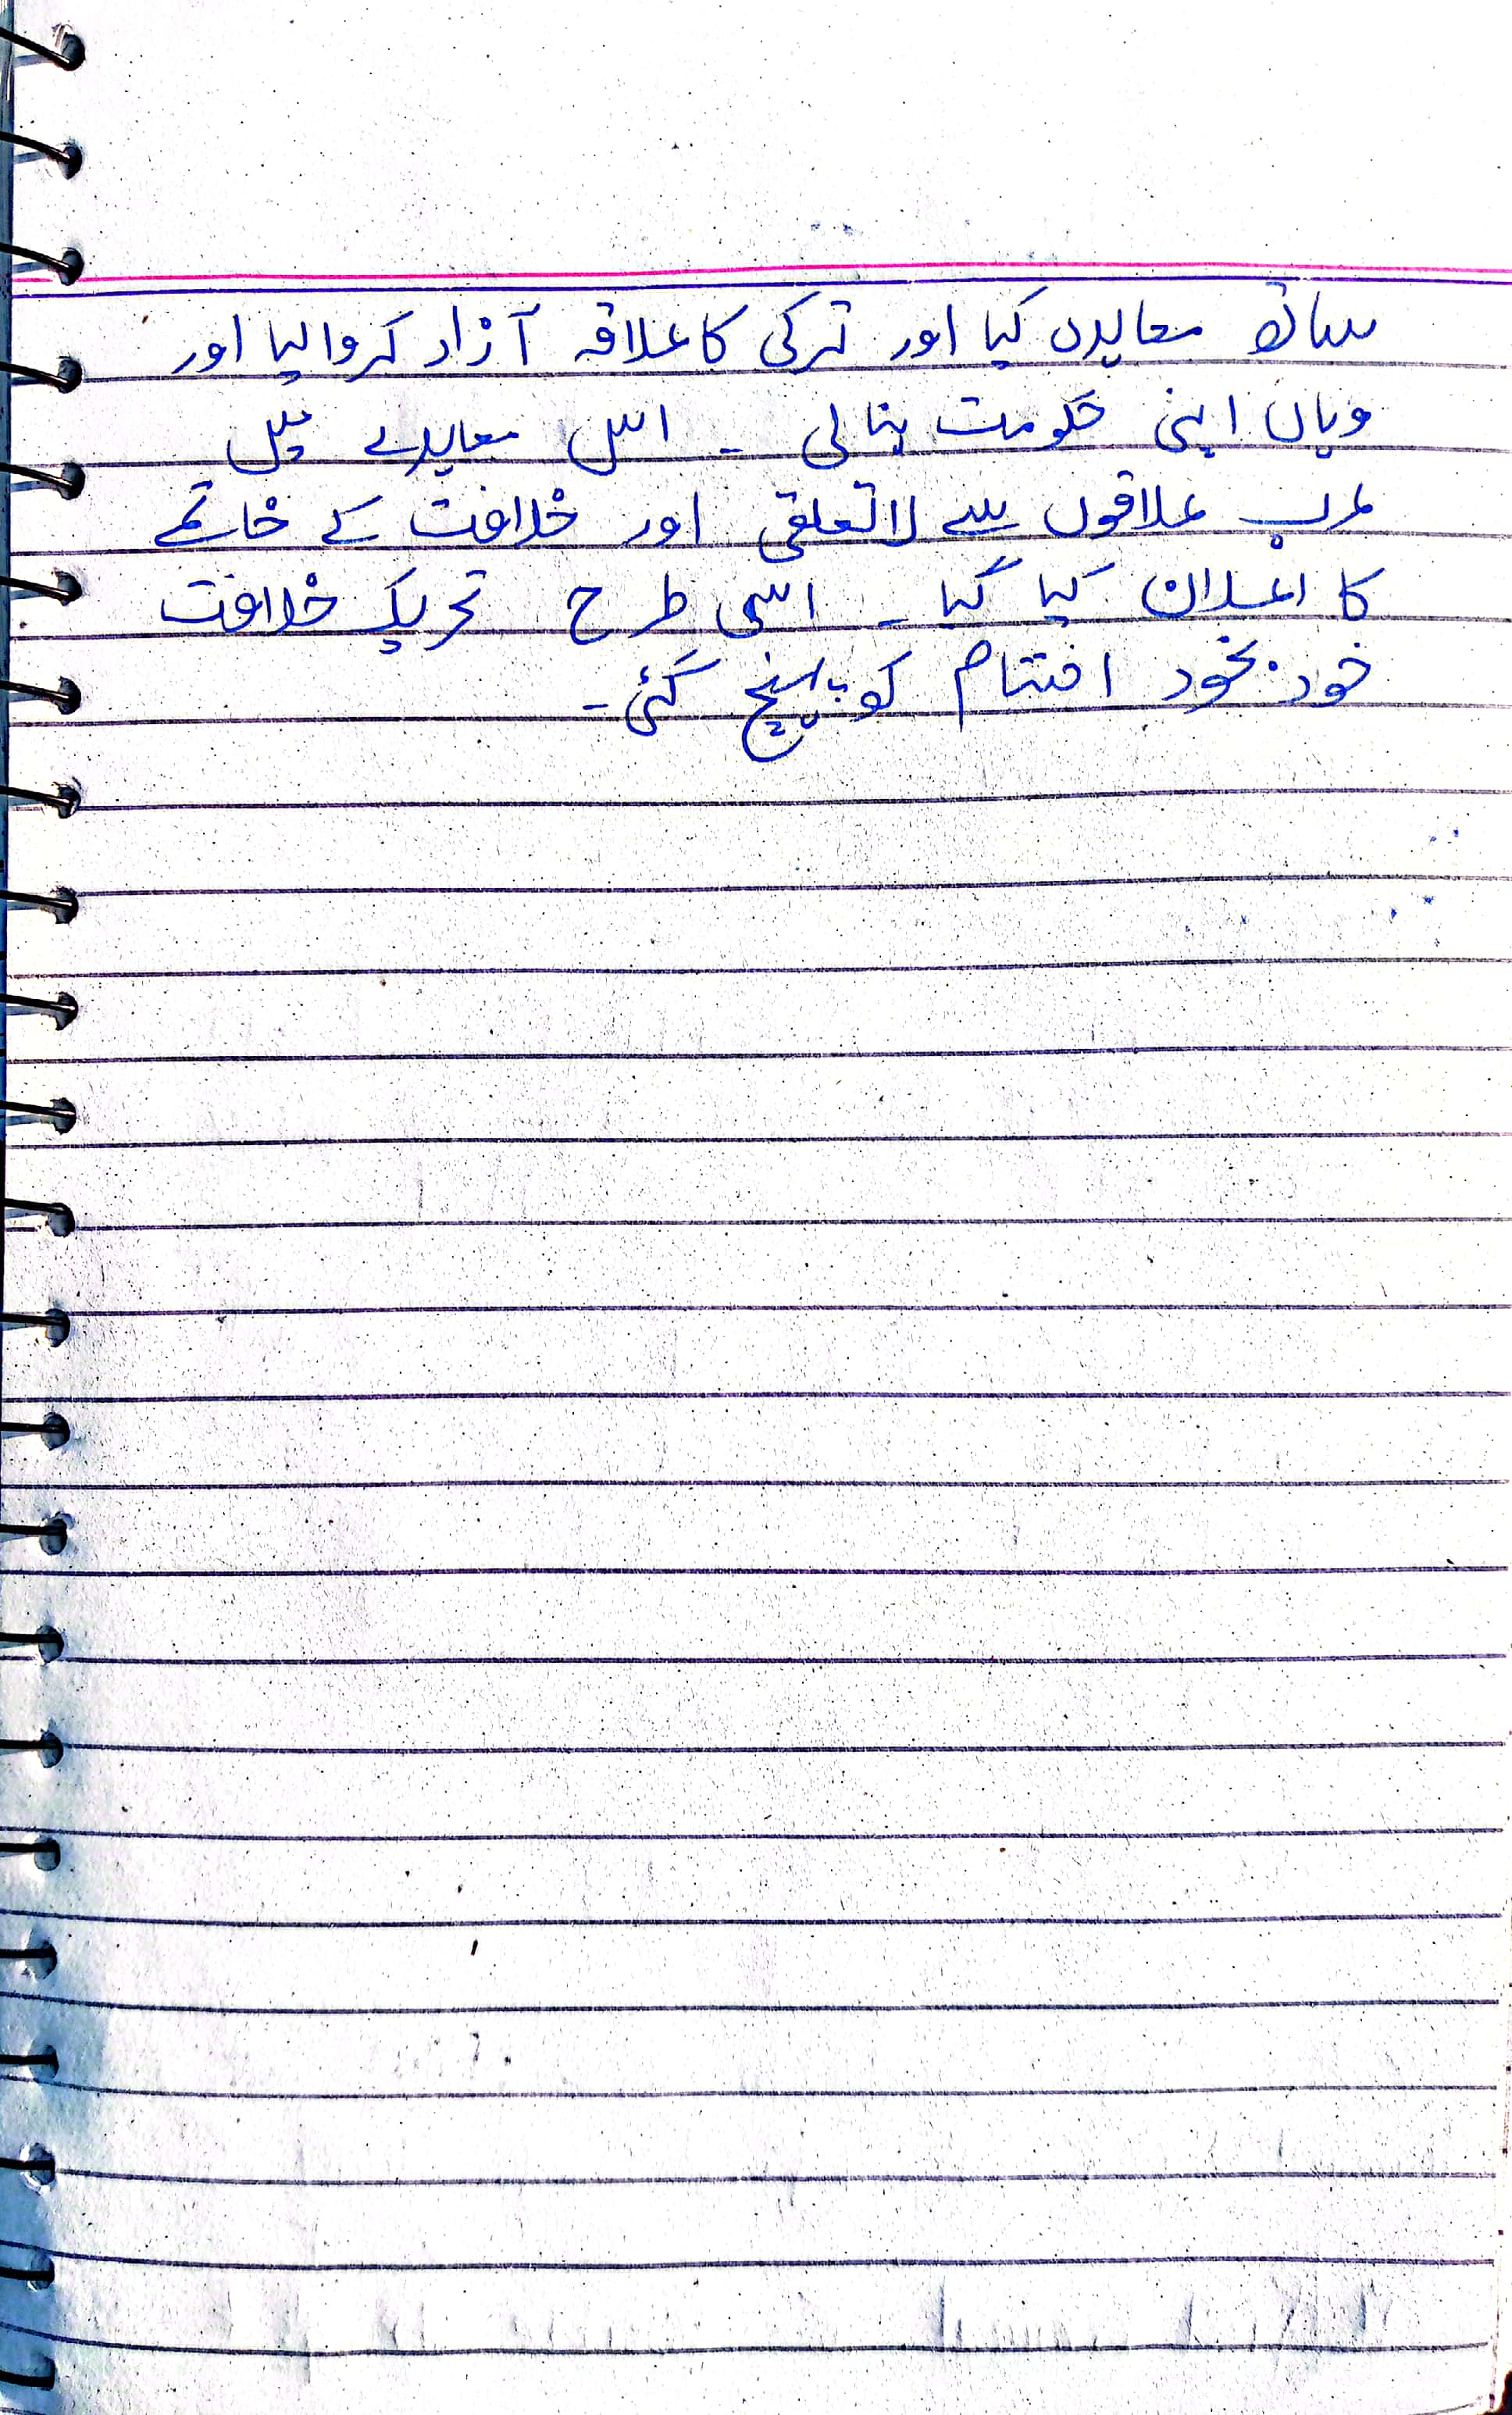 ساتھ معاہدہ کیا اور ترکی کا علاقہ آزاد کروا لیا اور
وہاں اپنی حکومت بنا لی ۔ اس معاہدے میں
عرب علاقوں سے لاتعلقی اور خلافت کے خاتمے
کا اعلان کیا گیا ۔ اسی طرح تحریک خلافت
خود بخود اختتام کو پہنچ گئی ۔